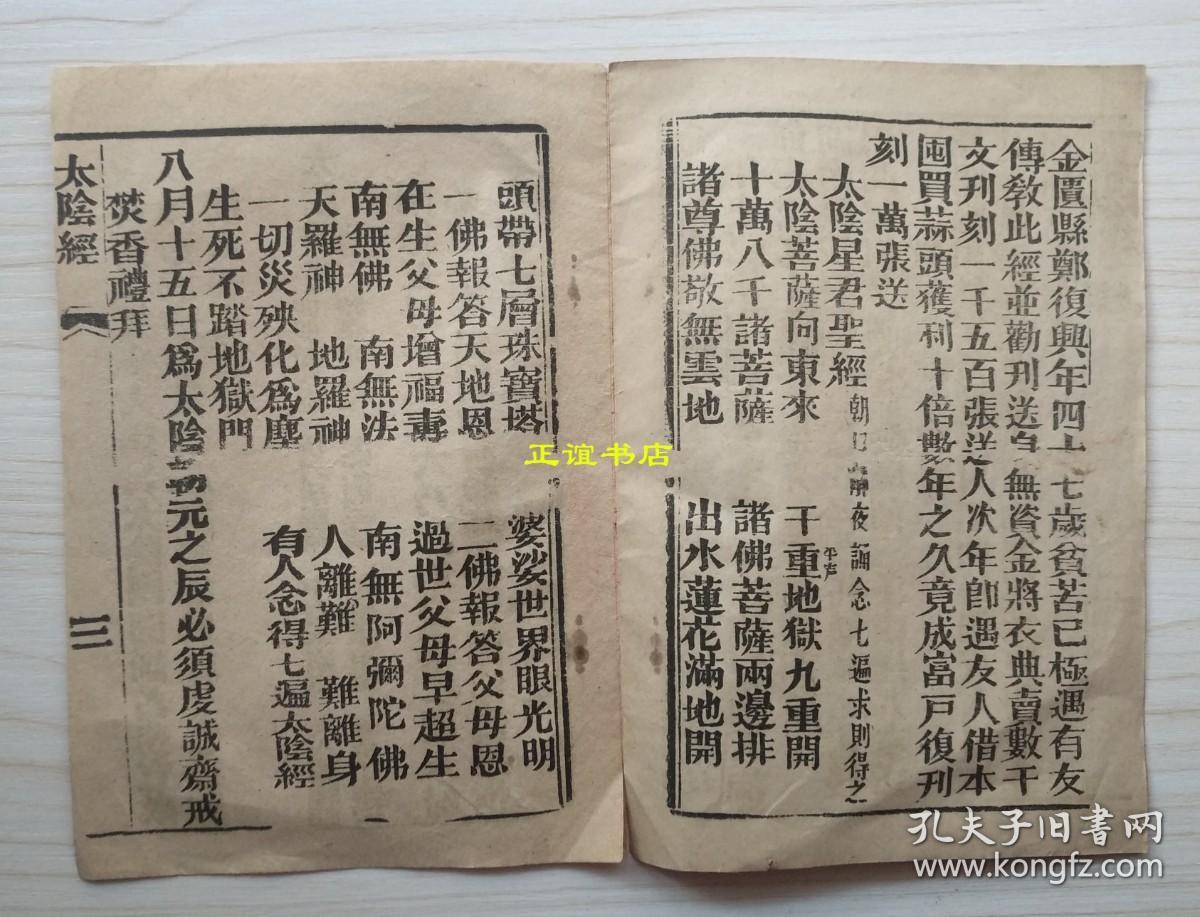 金匱縣鄭復興年四十七歲貧苦已極遇有友
傳敎此經並勸刊送自無資金將衣典賣數千
文刋刻一千五百張送人次年卽遇友人借本
囤買蒜頭獲利十倍數年之久竟成富戸復刋
刻一萬張送
太陰星君聖經 朝 夜誦念七遍求則得之
太陰菩薩向東來 千重地獄九重開
平声
十萬八千諸菩薩 諸佛菩薩兩邊排
諸尊佛敬無雲地 出水蓮花滿地開
頭帶七層珠寶塔 婆娑世界眼光明
一佛報答天地恩 二佛報答父母恩
在生父母增福壽 過世父母早超生
南無佛 南無法 南無阿彌陀佛
天羅神 地羅神 人離難 難離身
一切災殃化爲塵 有人念得七遍太陰經
生死不踏地獄門
八月十五日爲太陰 元之辰必須虔誠齋戒
焚香禮拜
太陰經 三
正谊书店
孔夫子旧书网
www.kongfz.com